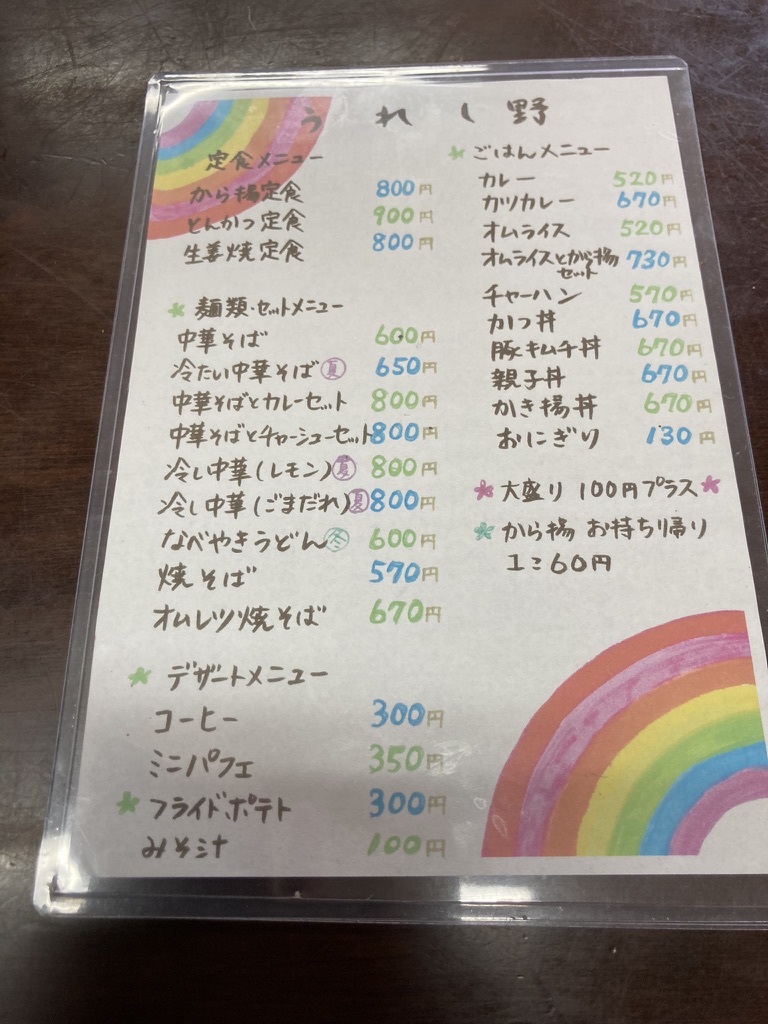 うれし野
定食メニュー
から揚定食 800円
とんかつ定食 900円
生姜焼定食 800円
麺類・セットメニュー
中華そば 600円
冷たい中華そば 夏 650円
中華そばとカレーセット 800円
中華そばとチャーシューセット 800円
冷し中華(レモン) 夏 800円
冷し中華(ごまだれ) 夏 800円
なべやきうどん 冬 600円
焼そば 570円
オムレツ焼そば 670円
デザートメニュー
コーヒー 300円
ミニパフェ 350円
フライドポテト 300円
みそ汁 100円
ごはんメニュー
カレー 520円
カツカレー 670円
オムライス 520円
オムライスとから揚 730円
セット
チャーハン 570円
かつ丼 670円
豚キムチ丼 670円
親子丼 670円
かき揚丼 670円
おにぎり 130円
大盛り 100円プラス
から揚 お持ち帰り
1コ 60円